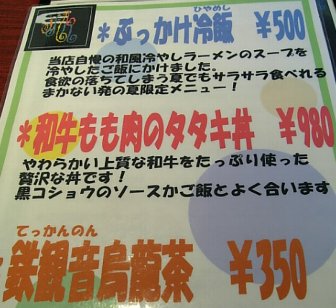 ひやめし
*ぶっかけ冷飯 ¥500
当店自慢の和風冷やしラーメンのスープを
冷やしたご飯にかけました。
食欲の落ちてしまう夏でもサラサラ食べれる
まかない発の夏限定メニュー！
*和牛もも肉のタタキ丼 ¥980
やわらかい上質な和牛をたっぷり使った
贅沢な丼です！
黒コショウのソースがご飯とよく合います
てっかんのん
*鉄観音烏龍茶 ¥350